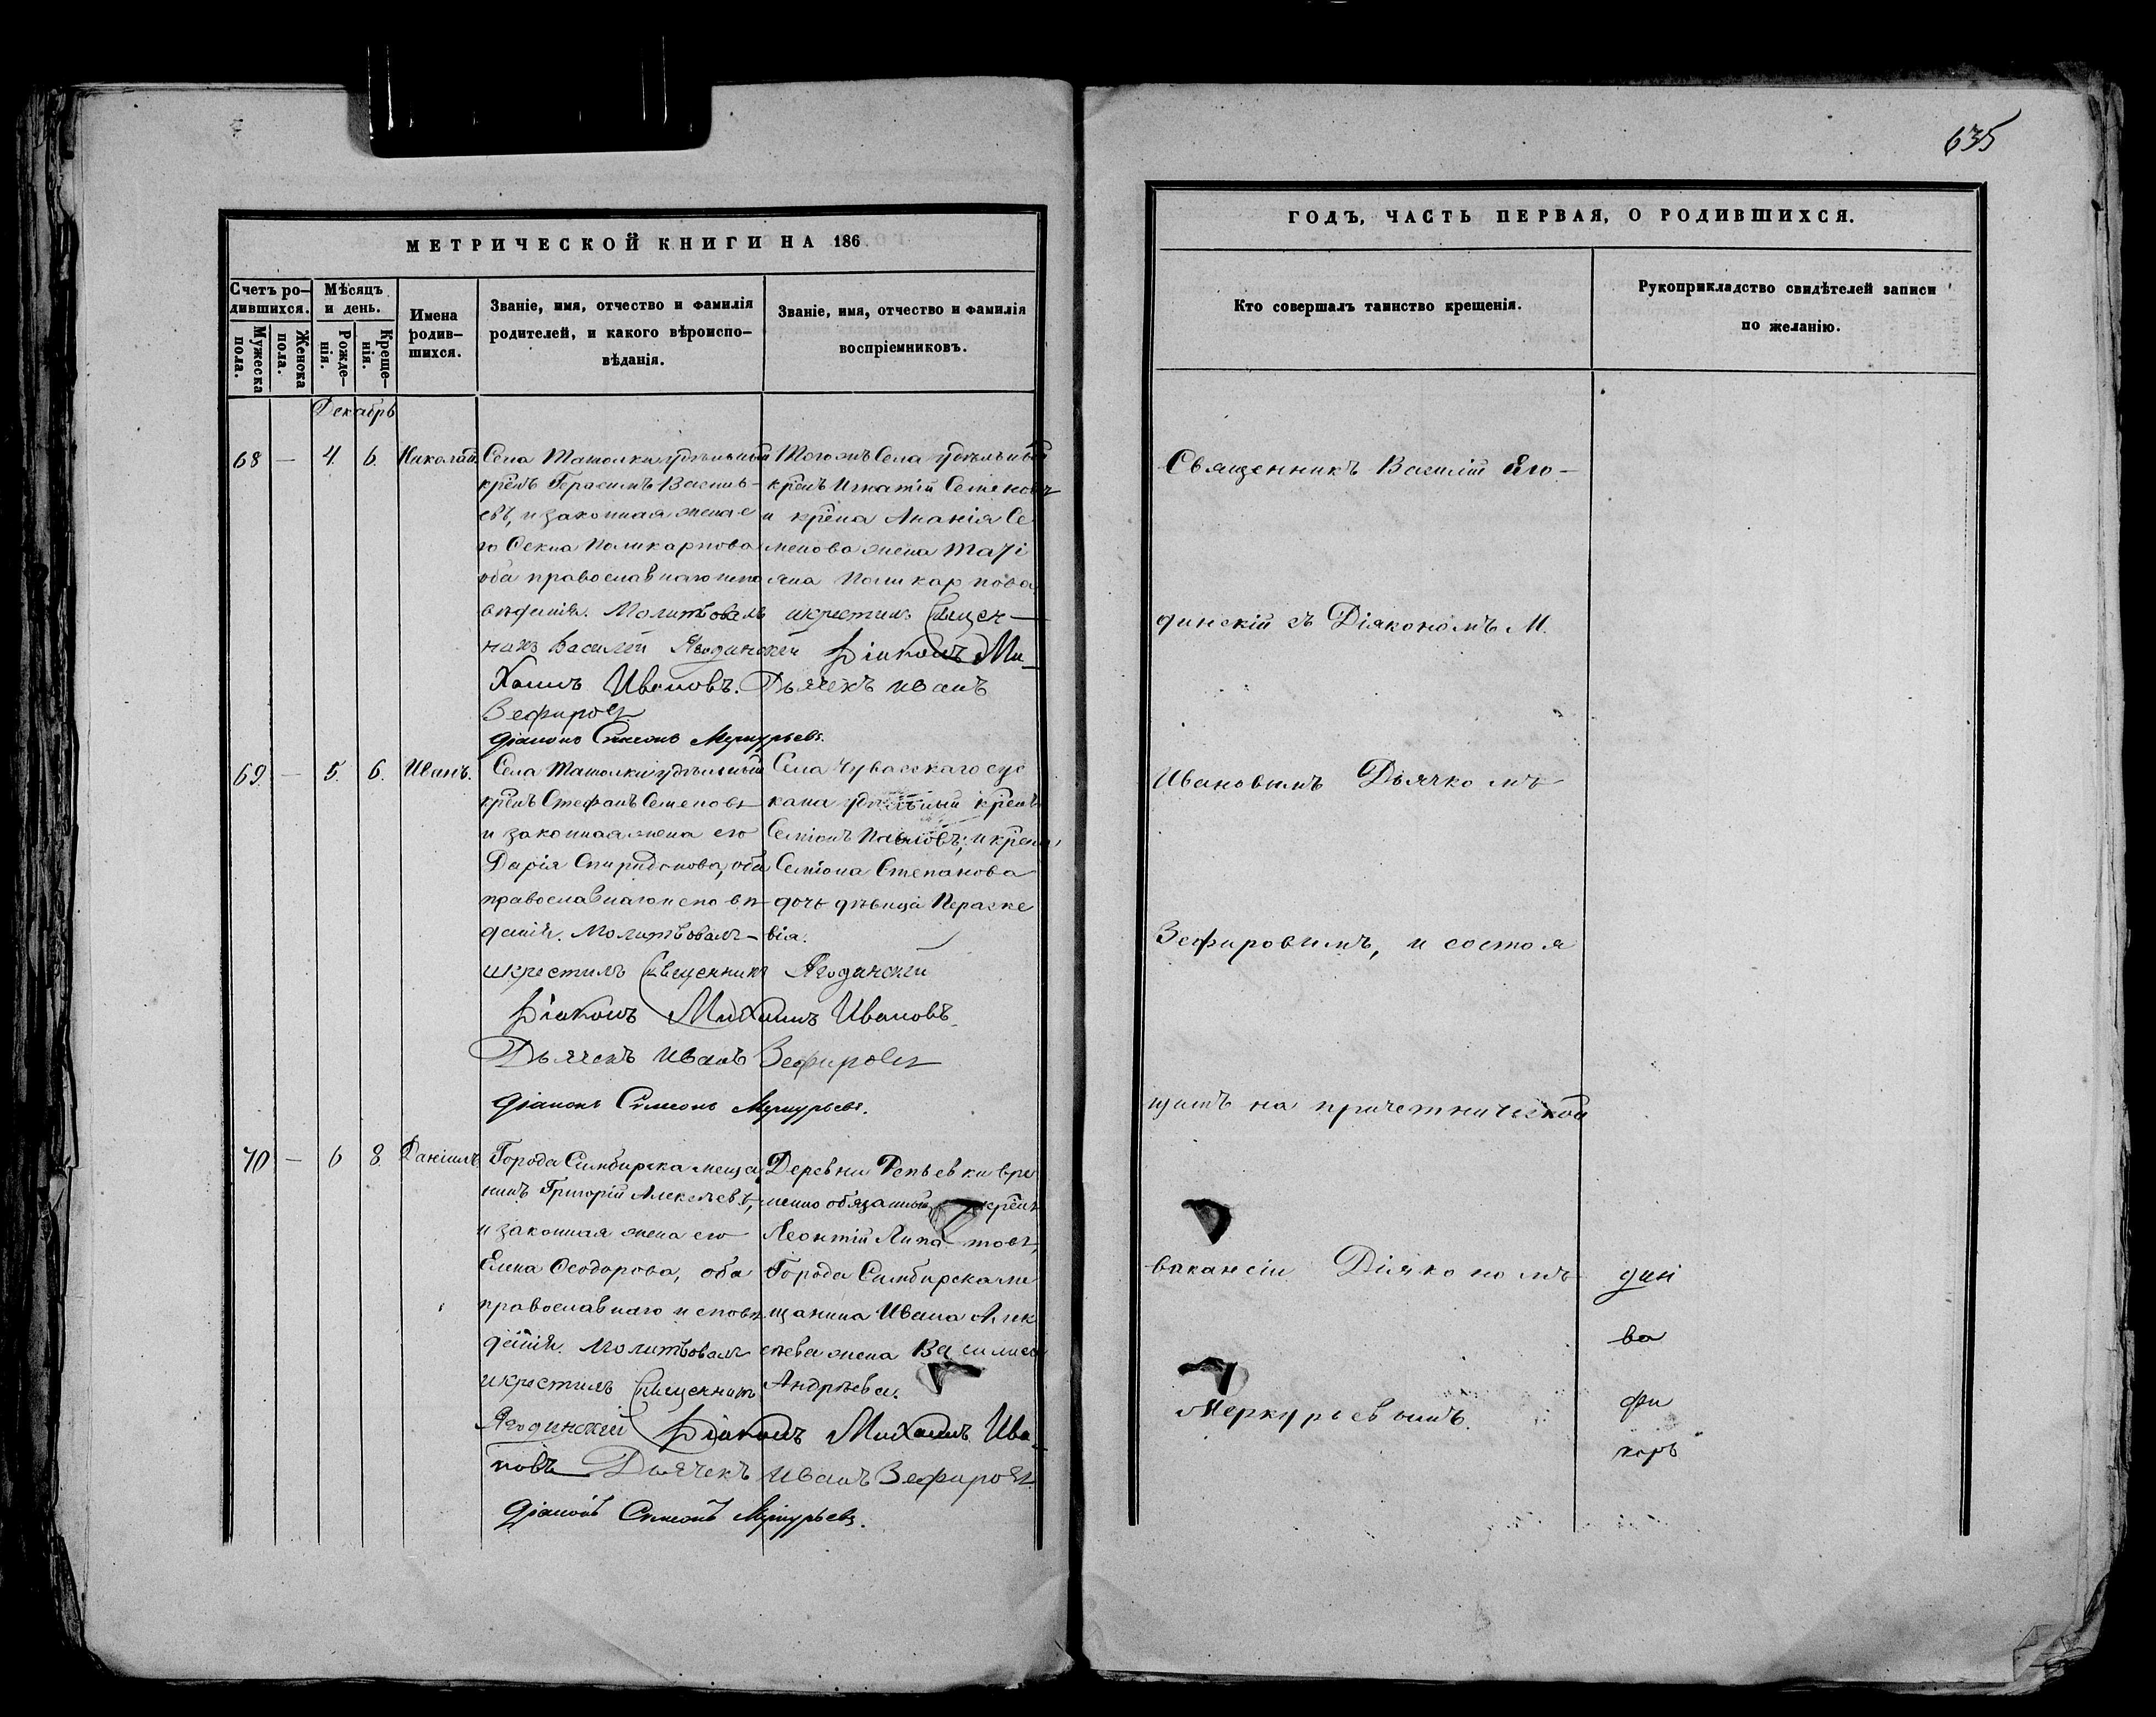 635
МЕТРИЧЕСКОЙ КНИГИ НА 186
Счетъ ро-
дившихся.
Мужеска
пола.
Женска
пола.
Мѣсяцъ
и день.
Рожде-
нія.
Креще-
нія.
Имена
родив-
шихся.
Званіе, имя, отчество и фамилія
родителей, и какого вѣроиспо-
вѣданія.
Званіе, имя, отчество и фамилія
воспріемниковъ.
Декабрь
68 — 4. 6. Николай
Села удѣльный
крѣнъ Герасимъ Васильѣ-
евъ, и законная жена е
го Ѳекла Поликарпова
оба православнаго испо
вѣданія. Молитвовалъ и крестилъ Священ-
никъ Василій Ягодинскій Діаконъ Ми-
хаилъ Ивановъ. Дьячекъ Иванъ
Зефировъ
діаконъ Симеонъ Меркурьевъ.
Тогожъ Села удѣльный
крѣнъ Игнатій Семеновъ
и крѣна Ананія Се
менова жена Татi
яна Поликарпова
69. — 5. 6. Иванъ.
Села удѣльный
крѣнъ Стефанъ Семеновъ
и законная жена его
Дарія Спиридонова, оба
православнаго исповѣ
данія. Молитвовалъ
и крестилъ Священникъ Ягодинскій
Діаконъ Михаилъ Ивановъ.
Дьячекъ Иванъ Зефировъ
діаконъ Симеонъ Меркурьевъ.
Села Чувасскаго сус
кана удѣльный крѣнъ
Семіонъ Павловъ; и крѣна
Семіона Степанова
дочь дѣвица Параске
вія.
70 — 6 8. Даніилъ
Города Симбирска меща
нинъ Григорій Алексѣевъ,
и законная жена его
Елена Ѳеодорова, оба
православнаго исповѣ
данія. Молитвовалъ
и крестилъ Священникъ
Ягодинскій Діаконъ Михаилъ Ива-
новъ Дьячекъ Иванъ Зефировъ.
діаконъ Симеонъ Меркурьевъ.
Деревни Репьевки вре
менно обязанный крѣнъ
Леонтій Липатовъ,
Города Симбирска ме
щанина Ивана Алек
сѣева жена Василиса
Андрѣева.
ГОДЪ, ЧАСТЬ ПЕРВАЯ, О РОДИВШИХСЯ.
Кто совершалъ таинство крещенія.
Рукоприкладство свидѣтелей записи
по желанію.
Священникъ Василій Яго-
динскій съ Діякономъ М.
Ивановымъ Дьячкомъ
Зефировымъ, и состоя
щимъ на причетнической
вакансіи Діякономъ
Меркурьевымъ.
дин
ва
фи
кур